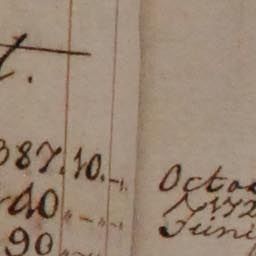 t.
387.10.-
40.--
90
Octo
172
Juni